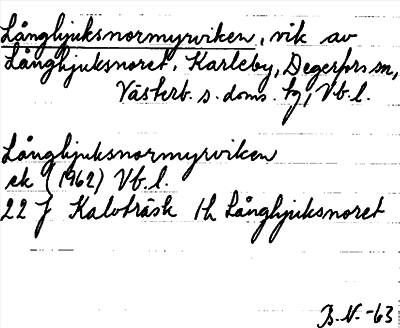 Långhjuksnormyrviken, vik av
Långhjuksnoret, Karleby, Degerfors sn,
Västerb. s. doms. tg, Vb. l.
Långhjuksnormyrviken
ek (1962) Vb. l.
22 J Kalvträsk 1h Långhjuksnoret
B.N.-63